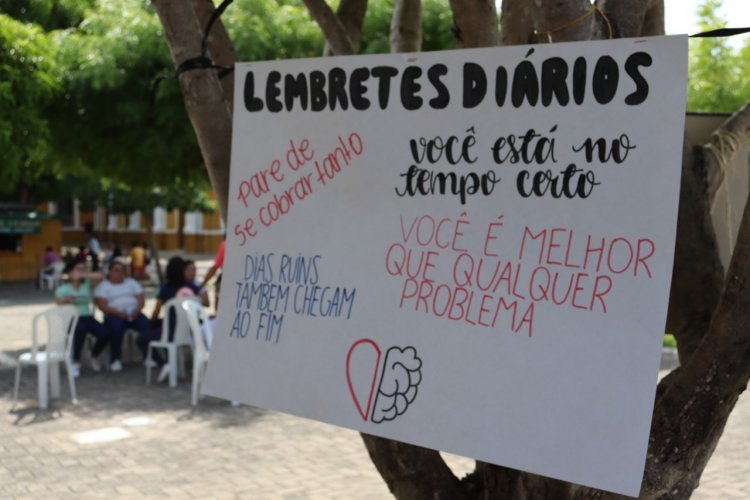 LEMBRETES DIÁRIOS
PARE DE
SE COBRAR TANTO
você está no
tempo certo
VOCÊ É MELHOR
QUE QUALQUER
PROBLEMA
DIAS RUINS
TAMBÉM CHEGAM
AO FIM